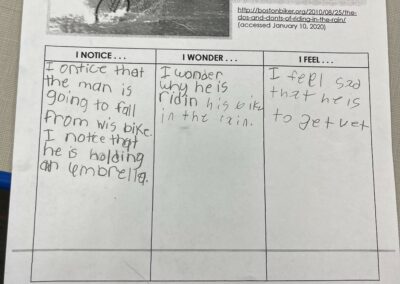 http://bostonbiker.org/2010/08/25/the-
dos-and-donts-of-riding-in-the-rain/
(accessed January 10, 2020)
I NOTICE . . .
I ontice that
the man is
going to fall
from wis bike.
I notice that
he is holding
an umbrella.
I WONDER . . .
I wonder
why he is
ridin his bike
in the rain.
I FEEL . . .
I feel sad
that he is
to get vet